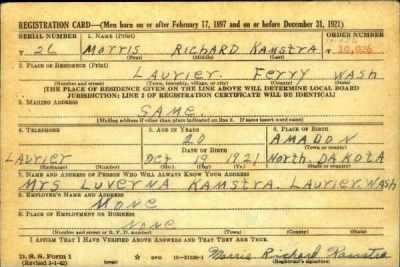 REGISTRATION CARD—(Men born on or after February 17, 1897 and on or before December 31, 1921)
SERIAL NUMBER 1. NAME (Print) ORDER NUMBER
T 26 Morris RICHARD KAMSTRA 10,026
(First) (Middle) (Last)
2. PLACE OF RESIDENCE (Print)
LAURIER. FERRY WASH
(Number and street) (Town, township, village, or city) (County) (State)
[THE PLACE OF RESIDENCE GIVEN ON THE LINE ABOVE WILL DETERMINE LOCAL BOARD
JURISDICTION; LINE 2 OF REGISTRATION CERTIFICATE WILL BE IDENTICAL]
3. MAILING ADDRESS
SAME.
[Mailing address if other than place indicated on line 2. If same insert word same]
4. TELEPHONE 5. AGE IN YEARS 6. PLACE OF BIRTH
20 AMADON
DATE OF BIRTH (Town or county)
LAURIER Oct 19 1921 North. DAKOTA
(Exchange) (Number) (Mo.) (Day) (Yr.) (State or country)
7. NAME AND ADDRESS OF PERSON WHO WILL ALWAYS KNOW YOUR ADDRESS
Mrs LUVERNA KAMSTRA. LAURIER. WASH
8. EMPLOYER'S NAME AND ADDRESS
NONE
9. PLACE OF EMPLOYMENT OR BUSINESS
NONE
(Number and street or R. F. D. number) (Town) (County) (State)
I AFFIRM THAT I HAVE VERIFIED ABOVE ANSWERS AND THAT THEY ARE TRUE.
D. S. S. Form 1 GPO 16—21630-1 Morris Richard Kamstra
(Revised 1-1-42) (Registrant's signature)